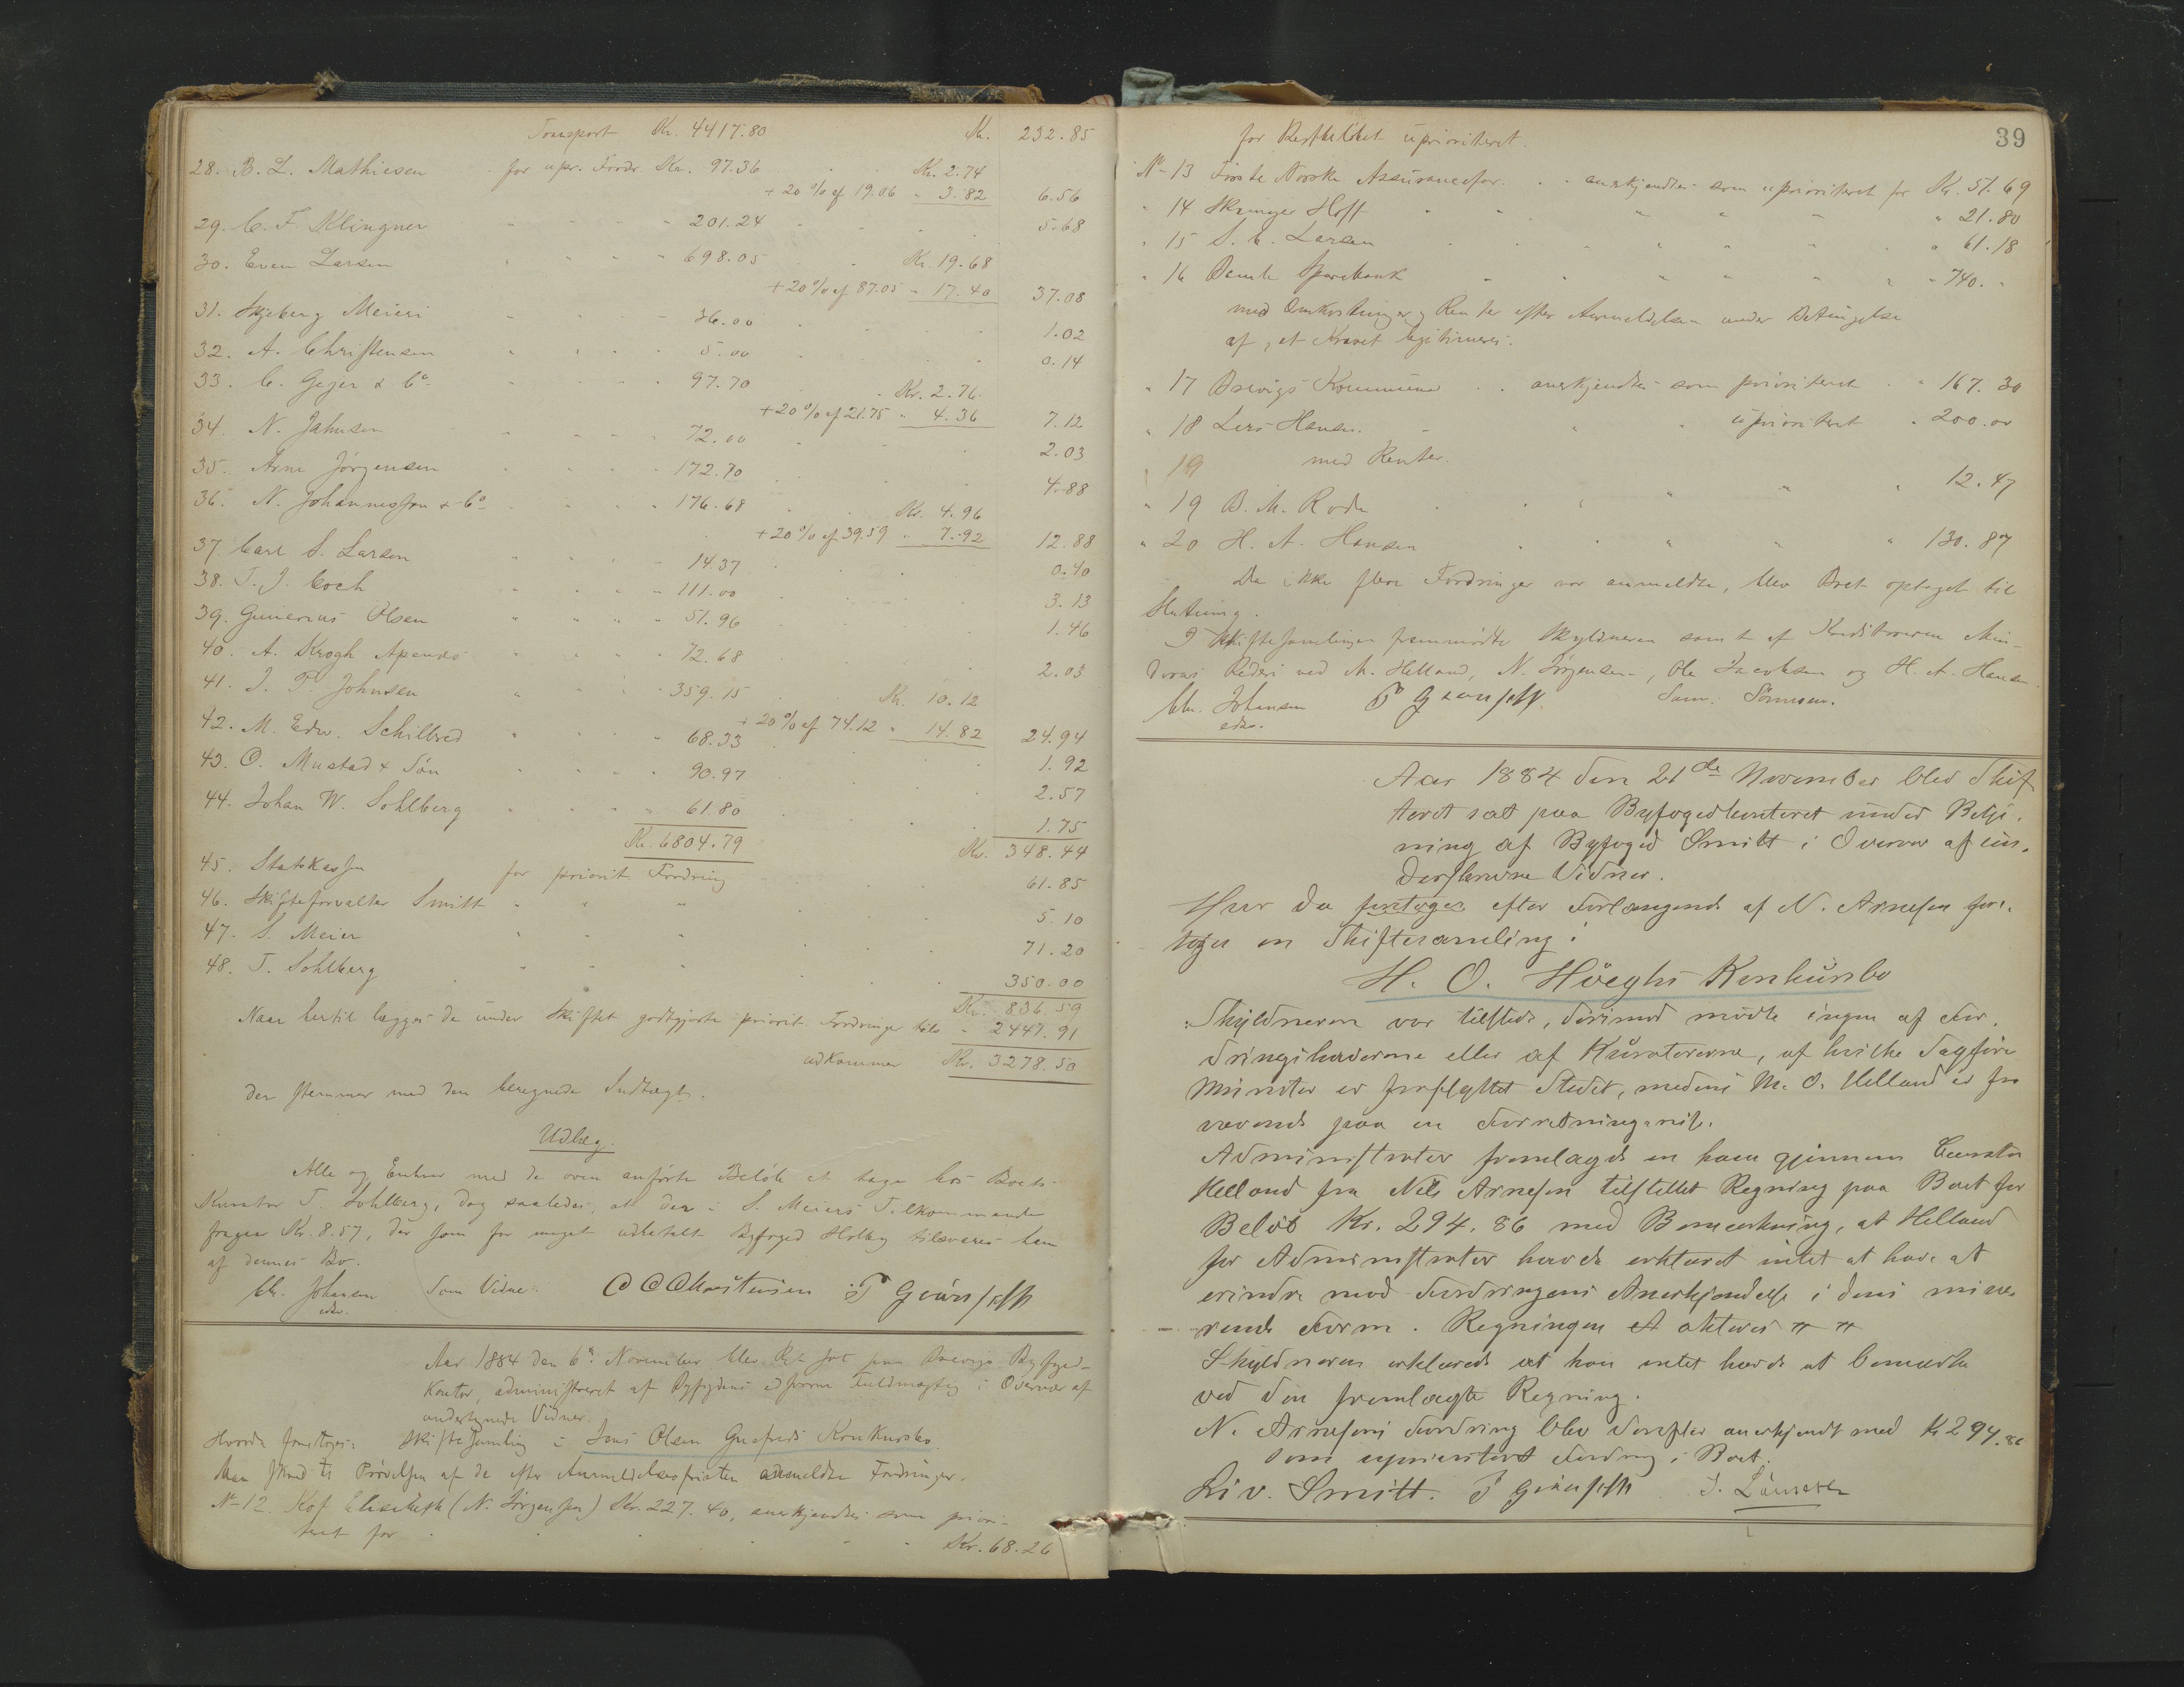 Transport Kr. 4417.80 Kr. 232.85
28. B. L. Mathiesen for upr. Fordr. Kr. 97.36 Kr. 2.74
+ 20 % af 19.06 " 3.82 6.56
29. C. F. Klingner " " " " 201.24 5.68
30. Even Larsen " " " " 698.05 Kr. 19.68
+ 20 % af 87.05 " 17.40 37.08
31. Skjeberg Meieri " " " " 36.00 1.02
32. A. Christensen " " " " 5.00 0.14
33. C. Geijer & Co. " " " " 97.70 Kr. 2.76
+ 20 % af 21.75 " 4.36 7.12
34. N. Jahnsen " " " " 72.00 2.03
35. Arne Jörgensen " " " " 172.70 4.88
36. N. Johannessen & Co " " " " 176.68 Kr. 4.96
+ 20 % af 39.59 " 7.92 12.88
37. Carl S. Larsen " " " " 14.37 0.40
38. T. J. Coch " " " " 111.00 3.13
39. Gunerius Olsen " " " " 51.96 1.46
40. A. Krogh Apenæs " " " " 72.68 2.03
41. J. T. Johnsen " " " " 359.15 Kr. 10.12
+ 20 % af 74.12 " 14.82 24.94
42. M. Edw. Schilbred " " " " 68.33 1.92
43. O. Mustad & Sön " " " " 90.97 2.57
44. Johan W. Sohlberg " " " " 61.80 1.75
Kr. 6804.79 Kr. 348.44
45. Statskassen for priorit. Fordring 61.85
46. Skifteforvalter Smitt " " " 5.10
47. S. Meier " " " 71.20
48. T. Sohlberg " " " 350.00
Kr. 836.59
Naar hertil lægges de under Skiftet godtgjorte priorit. Fordringer " 2447.91
udkommer Kr. 3278.50
der stemmer med den beregnede Indtægt.
Udlæg.
Alle og Enhver med de oven anförte Belöb at tage hos Boets
Kurator T. Sohlberg, dog saaledes, at der i S. Meiers Tilkommende
fragaar Kr. 8.57, der som for meget udbetalt Byfoged Holby tilsvares ham
af dennes Bo.
Chr. Johansen Som Vidne: O C Christensen T Grönseth
edsv.
Aar 1884 den 6te November blev Ret sat paa Brevigs Byfoged-
Kontor, administreret af Byfogdens edsvorne Fuldmægtig i Overvær af
undertegnede Vidner.
Hvorda foretoges: Skiftesamling i Jens Olsen Gusfreds Konkursbo.
Man skred til Prövelsen af de efter Anmeldelsesfristen anmeldte Fordringer.
No 12. Kof Elisabeth (N. Jörgensen) Kr. 227.40, anerkjendtes som priori-
teret for Kr. 68.26
39
for Restbelöbet uprioriteret.
No 13 Förste Norske Assurancefor. anerkjendtes som uprioriteret for Kr. 51.69
" 14 Skringer Hoff " " " " " 21.80
" 15 S. C. Larsen " " " " " 61.18
" 16 Bamle Sparebank " " " " " 740. "
med Omkostninger og Renter efter Anmeldelsen under Betingelse
af, at Kravet legitimeres.
" 17 Brevigs Kommune anerkjendtes som prioriteret " 167.30
" 18 Lars Hansen " " uprioriteret " 200.00
19 med Renter.
" 19 B. M. Rode " " " 12.47
" 20 H. A. Hansen " " " 130.87
Da ikke flere Fordringer var anmeldte, blev Boet optaget til
Slutning.
I Skiftesamlingen fremmödte Skyldneren samt af Kreditorerne Min-
dvas Rederi ved M. Helland, N. Jörgensen, Ole Jacobsen og H. A. Hansen.
Chr. Johansen T Grönseth. Sam. Sönnesen.
edsv.
Aar 1884 den 21de November blev Skif
teret sat paa Byfogedkontoret under Betje.
ning af Byfoged Smitt i Overvær af un.
derskrevne Vidner.
Hvor da foretoges efter Forlangende af N. Arnesen fore.
toges en Skiftesamling i
H. O. Höeghs Konkursbo
Skyldneren var tilstede, derimod mödte ingen af For.
dringshaverne eller af Kuratorerne, af hvilke Sagförer
Münster er fraflyttet Stedet, medens M. O. Helland er fra
værende paa en Forretningsreise.
Administrator fremlagde en ham gjennem Curator
Helland fra Nils Arnesen tilstillet Regning paa Boet for
Belöb Kr. 294.86 med Bemærkning, at Helland
for Administrator havde erklæret intet at have at
erindre mod Fordringens Anerkjendelse i dens nuvæ.
rende Form. Regningen at akteres
Skyldneren erklærede at han intet havde at bemærke
ved den fremlagte Regning.
N. Arnesens Fordring blev derefter anerkjendt med Kr 294.86
som uprioriteret Fordring i Boet.
Liv. Smitt. T Grönseth J. Laursen